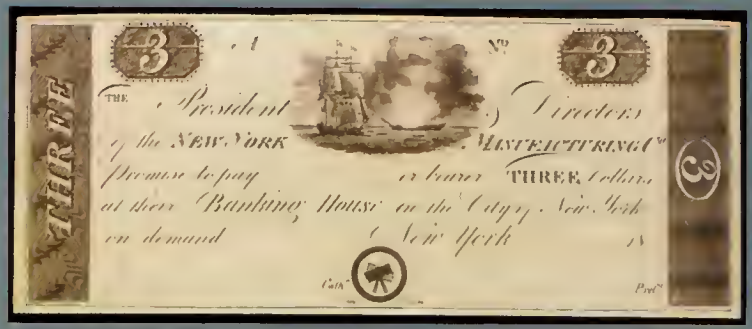 3 A Nº 3
THREE
THE President & Directors
of the NEW-YORK MANUFACTURING Co
promise to pay or bearer THREE Dollars
at their Banking House in the City of New York
on demand New York 18
Cashr Presdt
3